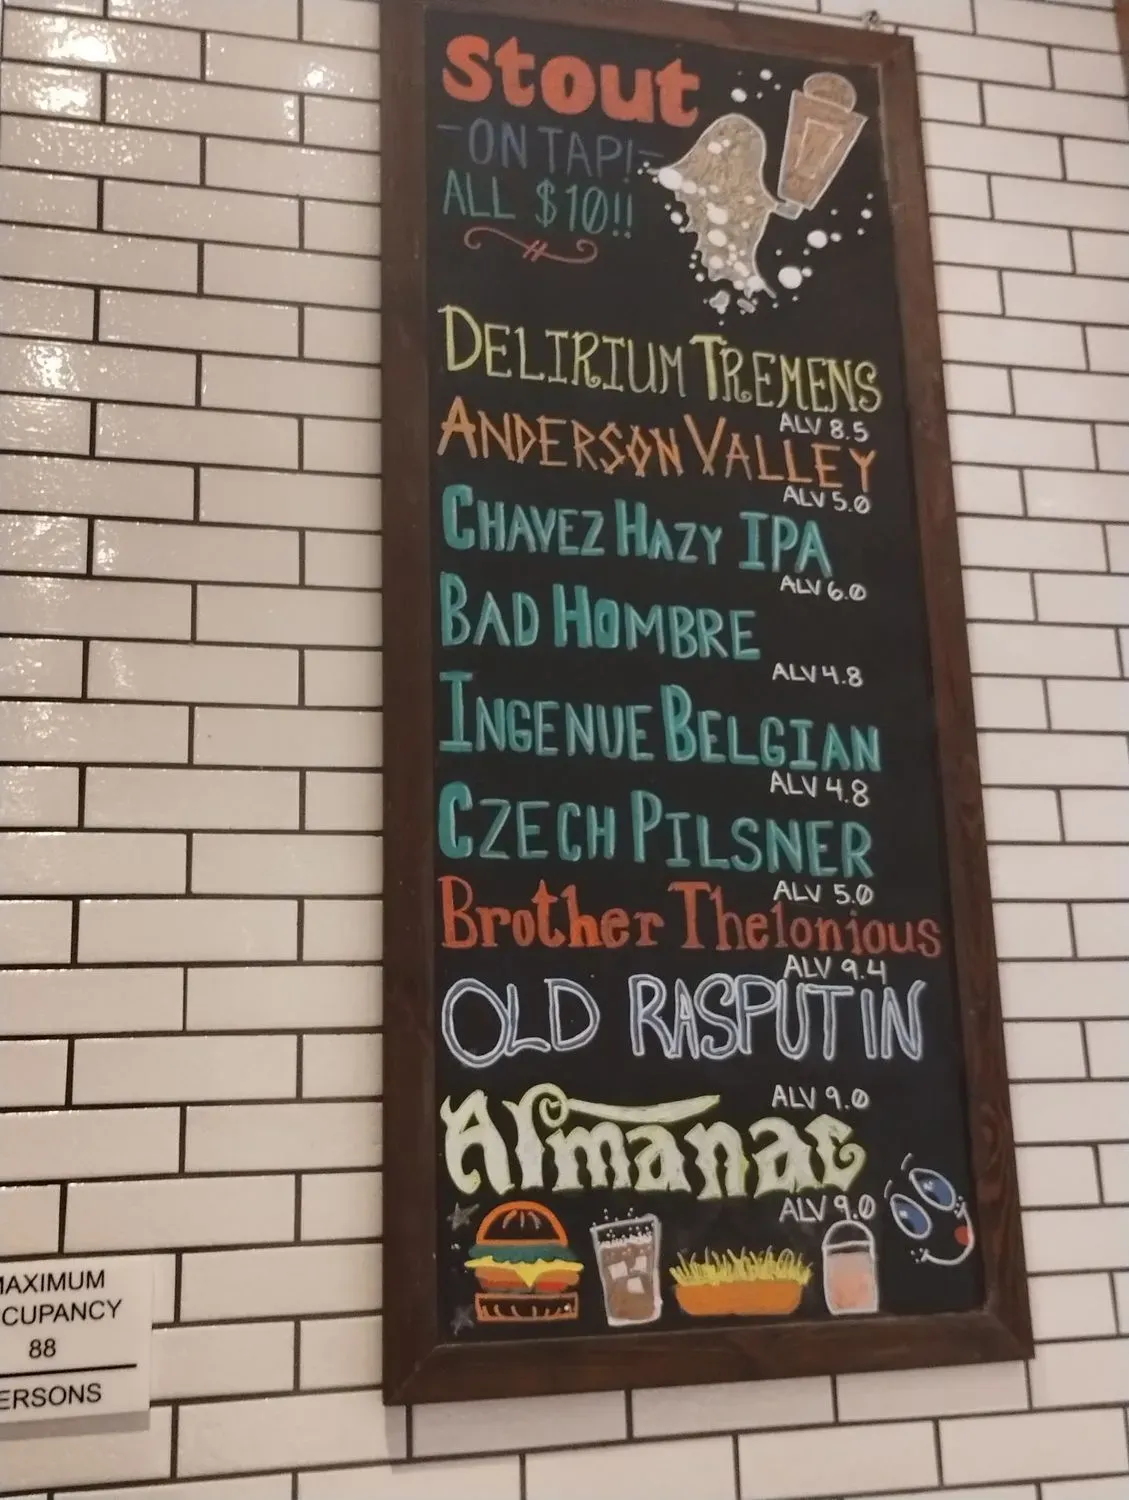 stout
-ON TAP!-
ALL $10!!
DELIRIUM TREMENS
ALV 8.5
ANDERSON VALLEY
ALV 5.0
CHAVEZ HAZY IPA
ALV 6.0
BAD HOMBRE
ALV 4.8
INGENUE BELGIAN
ALV 4.8
CZECH PILSNER
ALV 5.0
Brother Thelonious
ALV 9.4
OLD RASPUTIN
ALV 9.0
Almanac
ALV 9.0
MAXIMUM
CUPANCY
88
ERSONS